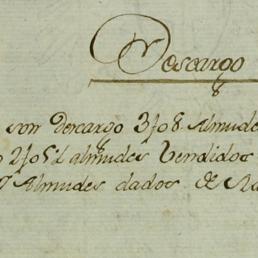 Descargo
son Descargo 3708 Almude
almudes Vendidos
Almudes dados de Ra